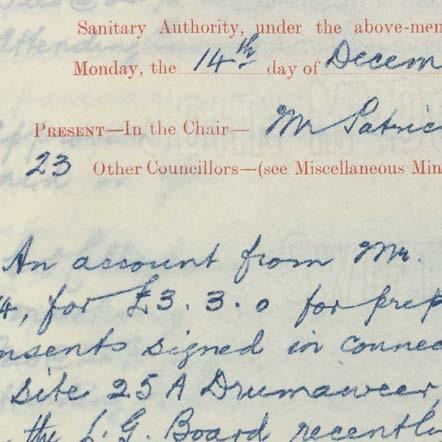 Sanitary Authority, under the above-men
Monday, the 14th day of Decem
PRESENT—In the Chair— Mr Patric
23 Other Councillors—(see Miscellaneous Min
An account from Mr.
4, for £3.3.0 for prep
nsents signed in connec
site 25A Drumaweer,
the L.G. Board recently